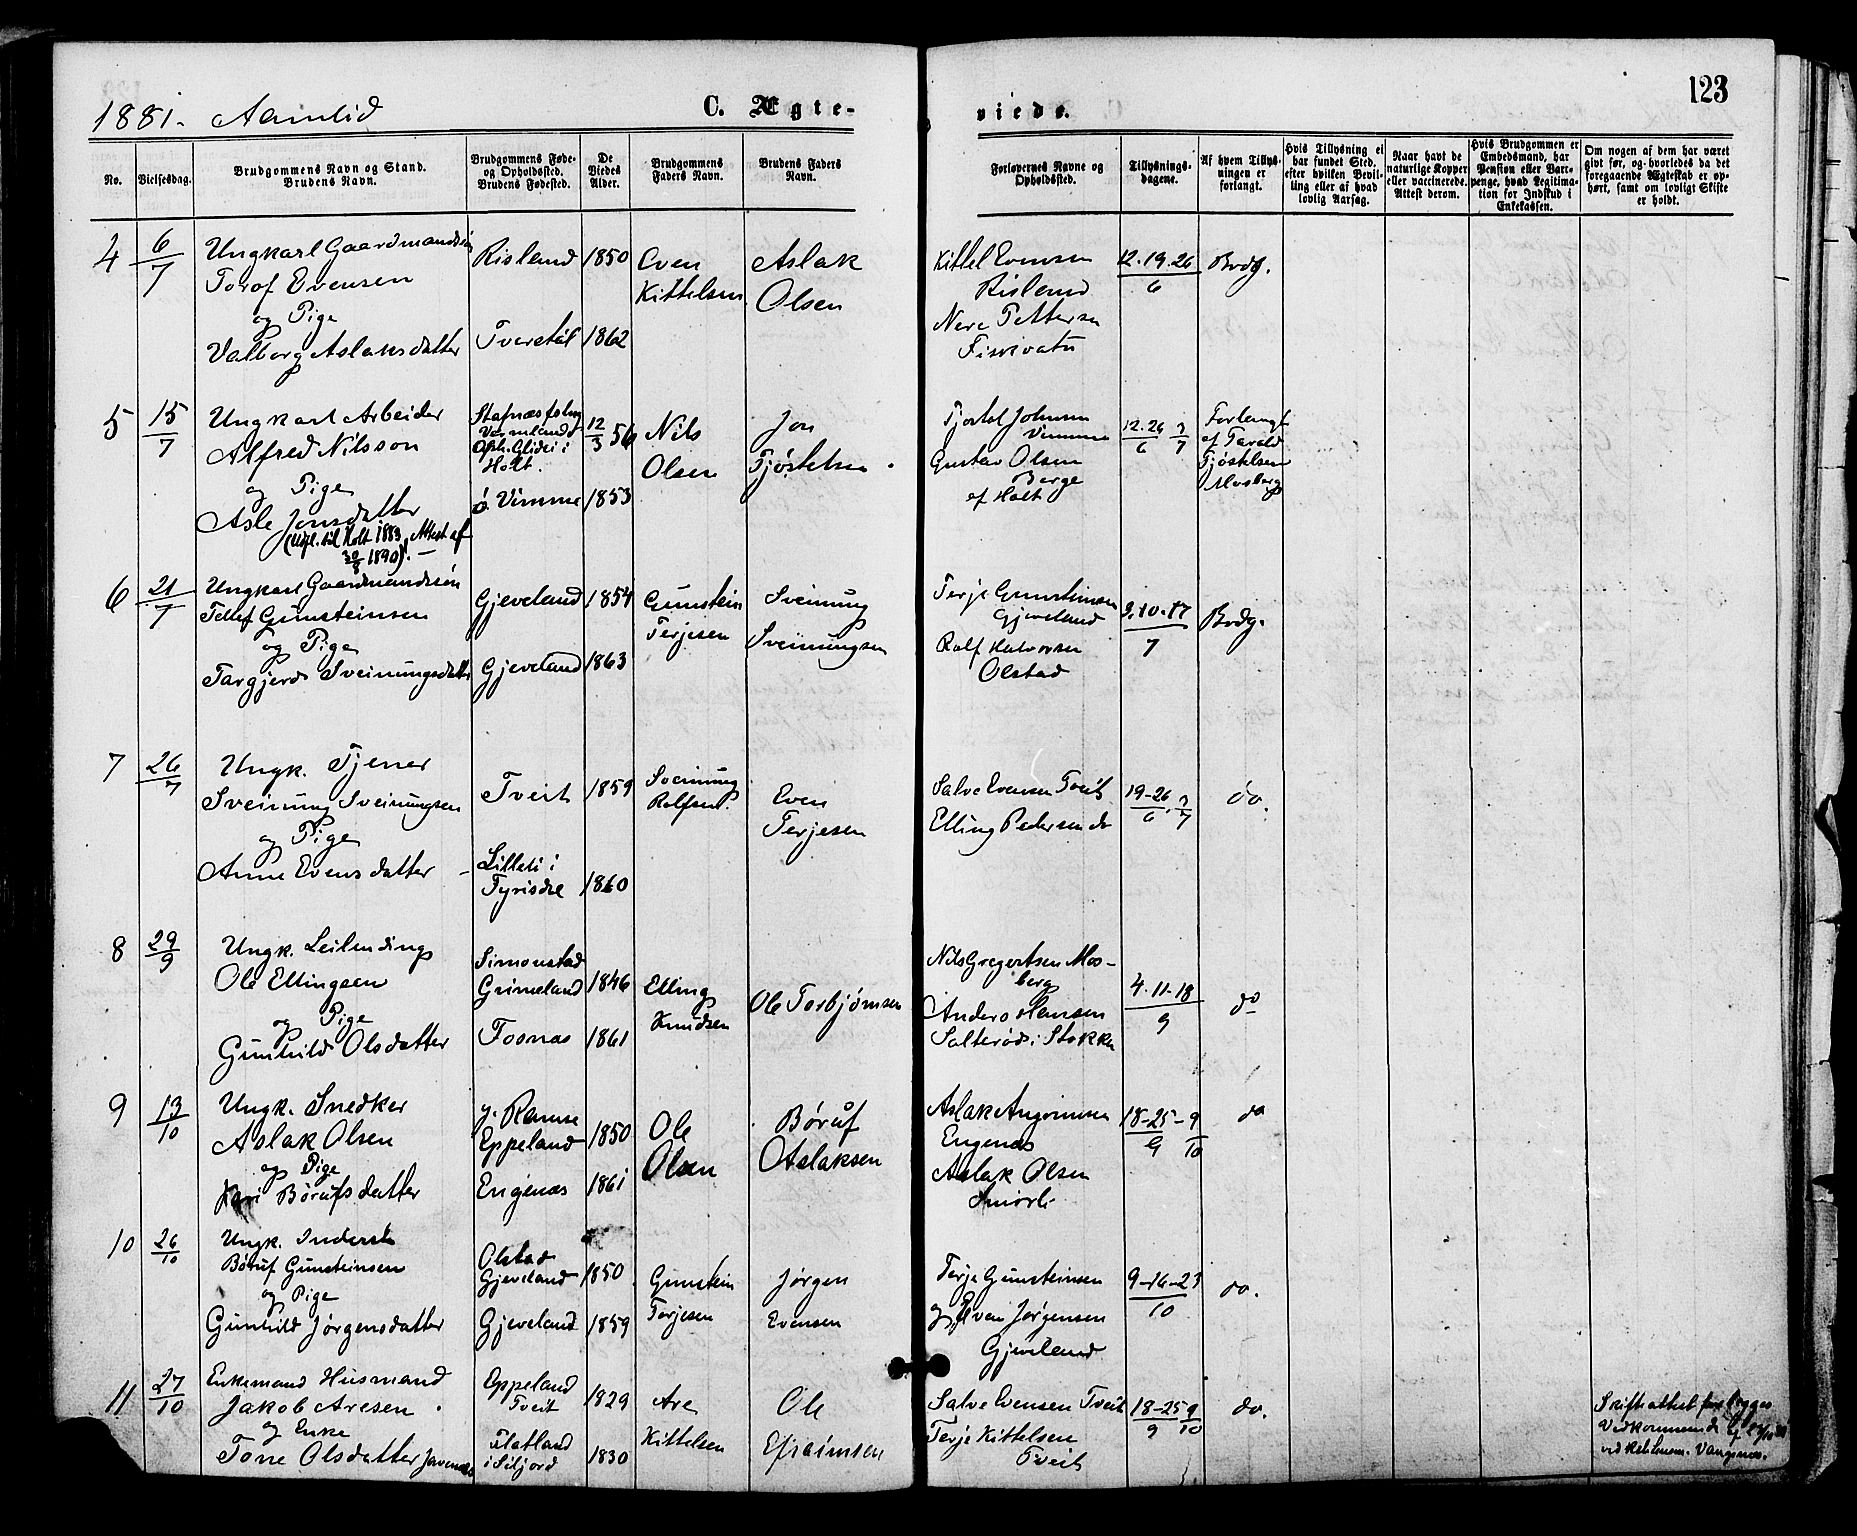 123
1881. Aamlid
C. Ægte-
viede.
No.
Vielsesdag.
Brudgommens Navn og Stand.
Brudens Navn.
Brudgommens Føde-
og Opholdssted.
Brudens Fødested.
De
Viedes
Alder.
Brudgommens
Faders Navn.
Brudens Faders
Navn.
Forlovernes Navne og
Opholdssted.
Tillysnings-
dagene.
Af hvem Tillys-
ningen er
forlangt.
Hvis Tillysning ei
har fundet Sted,
efter hvilken Bevil-
ling eller af hvad
lovlig Aarsag.
Naar havt de
naturlige Kopper
eller vaccinerede.
Attest derom.
Hvis Brudgommen er
Embedsmand, har
Pension eller Vart-
penge, hvad Legitima-
tion for Indskud i
Enkekassen.
Om nogen af dem har været
gift før, og hvorledes da det
foregaaende Ægteskab er op-
hørt, samt om lovligt Skifte
er holdt.
4 6/7
Ungkarl Gaardmandssøn
Torof Evensen
og Pige
Valborg Aslaksdatter
Risland 1850
Tveretøl 1862
Even
Kittelsen
Aslak
Olsen
Kittel Evensen
Risland
Nere Pettersen
12.19.26/6
Brdg.
5 15/7
Ungkarl Arbeider
Alfred Nilsson
og Pige
Asle Jonsdatter
(Udfl. til Holt 1883, Attest af
30/8 1890). —
Vermland
Holt.
ø. Vimme 1853
12/3 56
Nils
Olsen
Jon
Tjøstelsen.
Vimme
Gustav Olsen
Berge
af Holt
12.26/6 3/7
Forlangt
af Tarald
Tjøstelsen
Mosberg
6 21/7
Ungkarl Gaardmandssøn
Tellef Gunsteinsen
og Pige
Targjerd Sveinungsdatter
Gjeveland 1854
Gjeveland 1863
Gunstein
Terjesen
Sveinung
Sveinungsen
Terje Gunsteinsen
Gjeveland
Rolf Halvorsen
Olstad
3.10.17/7
Brdg.
7 26/7
Ungk. Tjener
Sveinung Sveinungsen
og Pige
Anne Evensdatter
Tveit 1859
Lilleli i
Tyrisdal 1860
Sveinung
Rolfsen
Even
Terjesen
Salve Evensen Tveit
Elling Pedersen do
19-26/6 3/7
do.
8 29/9
Ungk. Leilending
Ole Ellingsen
og Pige
Gunhild Olsdatter
Simonstad
Grimeland 1846
Fosnas 1861
Elling
Knudsen
Ole Torbjørnsen
Nils Gregertsen Mos-
berg
Anders Hansen
Salterød i Stokken
4.11.18/9
do
9 13/10
Ungk. Snedker
Aslak Olsen
og Pige
Kari Børufsdatter
y. Ramse
Eppeland 1850
Engenæs 1861
Ole
Olsen
Børuf
Aslaksen
Engenæs
Aslak Olsen
Smørli
18-25/9 - 9/10
do
10 26/10
Ungk. Inderst
Børuf Gunsteinsen
og Pige
Gunhild Jørgensdatter
Olstad
Gjeveland 1850
Gjeveland 1859
Gunstein
Terjesen
Jørgen
Evensen
Terje Gunsteinsen
og Even Jørgensen
Gjeveland
9-16-23/10
do.
11 27/10
Enkemand Husmand
Jakob Aresen
og Enke
Tone Olsdatter
Eppeland
Tveit 1829
Flatland
i Siljord 1830
Are
Kittelsen
Ole
Efraimsen
Salve Evensen Tveit
Terje Kittelsen
Tveit
18-25/9 9/10
do.
Skifteattest for begges
Vedkommende